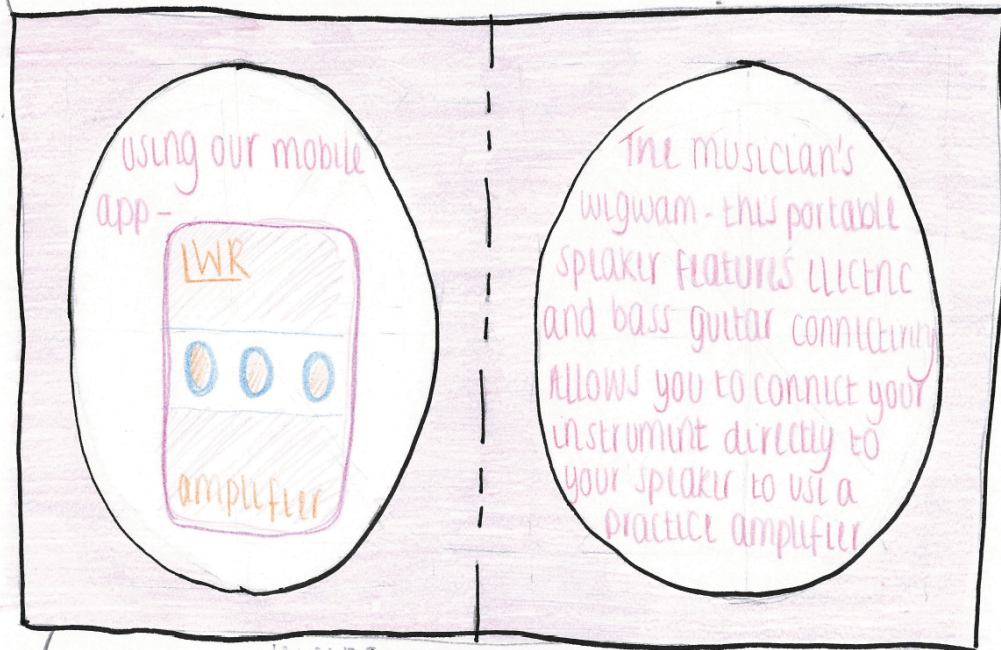 using our mobile
app -
LWR
amplifier
The musician's
wigwam - this portable
speaker features electric
and bass guitar connectivity
Allows you to connect your
instrument directly to
your speaker to use a
practice amplifier